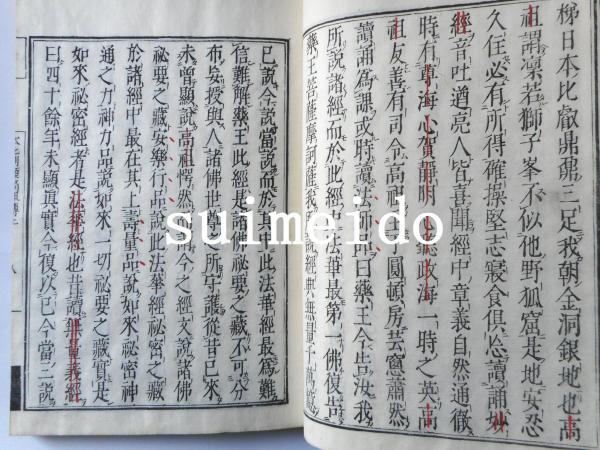 梯日本比叡鼎鼐三足我朝金洞銀地也高
祖謂凜若獅子峯不似他野狐窟是地安忍
久住必有所得確操堅志寢食俱忘讀誦妙
經音吐遒亮人皆喜聞經中章義自然通徹
時有尊海心賀靜明也聰政海一時之英高
祖友善有司令高祖圓頓房芸窻蕭然
讀誦為課或時讀法曰藥王今告汝我
所說諸經而於此經中法華最第一佛復告
藥王菩薩摩訶薩我所說經典無量千萬億
已說今說當說而於其中此法華經最為難
信難解藥王此經是諸佛祕要之藏不可分
布妄授與人諸佛世尊之所守護從昔已來
未曾顯說高祖愕然曰今之經文說諸佛
祕要之藏安樂行品說此法華經祕密之藏
於諸經中最在其上壽量品說如來祕密神
通之力神力品說如來一切祕要之藏實是
如來祕密經者是法華經也共讀無量義經
曰四十餘年未顯真實今復次已今當三說
suimeido